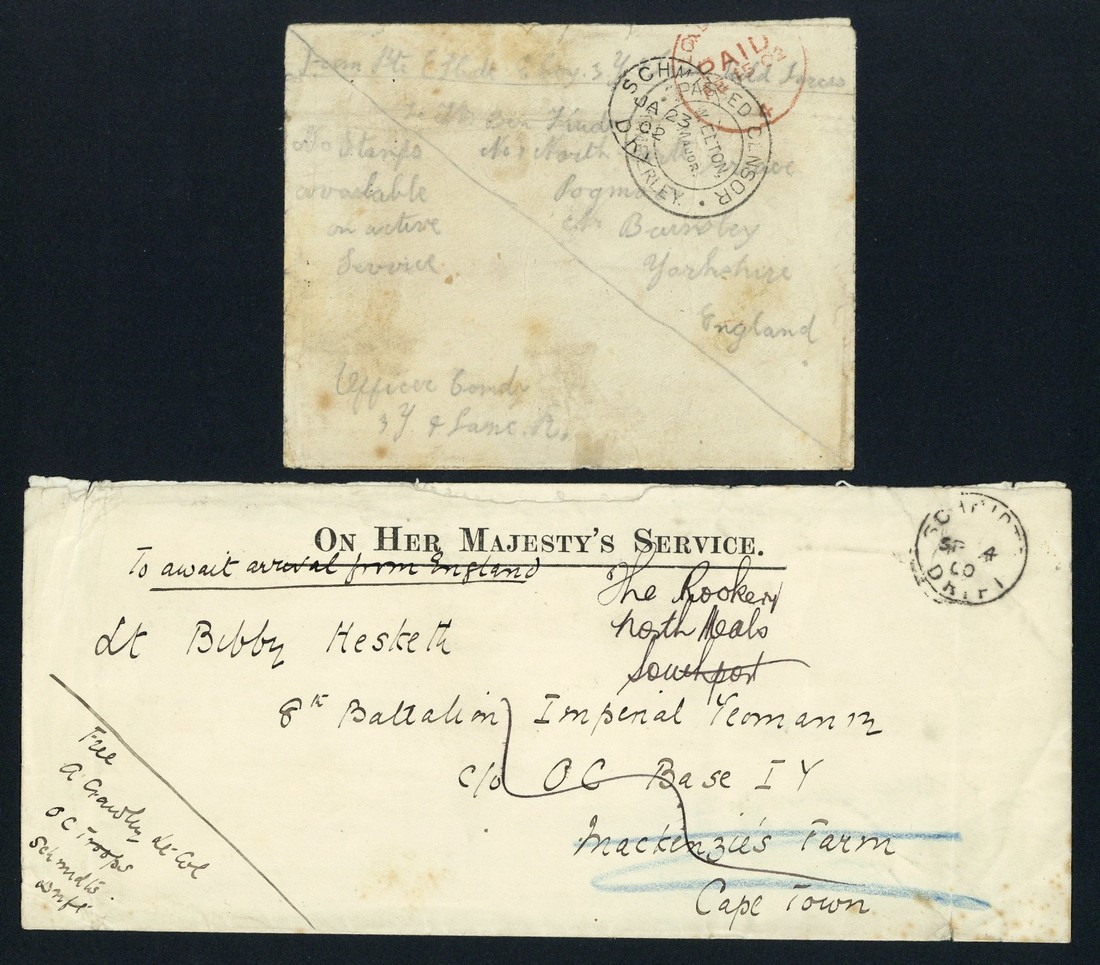 From Pte E Coy. 3 Y Field Forces
No Stamps
available
on active
Service
No 1 North Terrace
Pogmoor
Nr Barnsley
Yorkshire
England
Officer Comdg
3 Y. & Lanc. R.
PAID
PASSED CENSOR
ELTON,
MAJOR.
JA 23
02
ON HER MAJESTY'S SERVICE.
To await arrival from England
The Rookery
North Meols
Southport
Lt Bibby Hesketh
8th Battalion Imperial Yeomanry
c/o OC Base I Y
Mackenzie's Farm
Cape Town
Free
A Crawley Lt Col
OC Troops
Schmidts
Drift
SCHMIDTS
SP 4
00
DRIFT